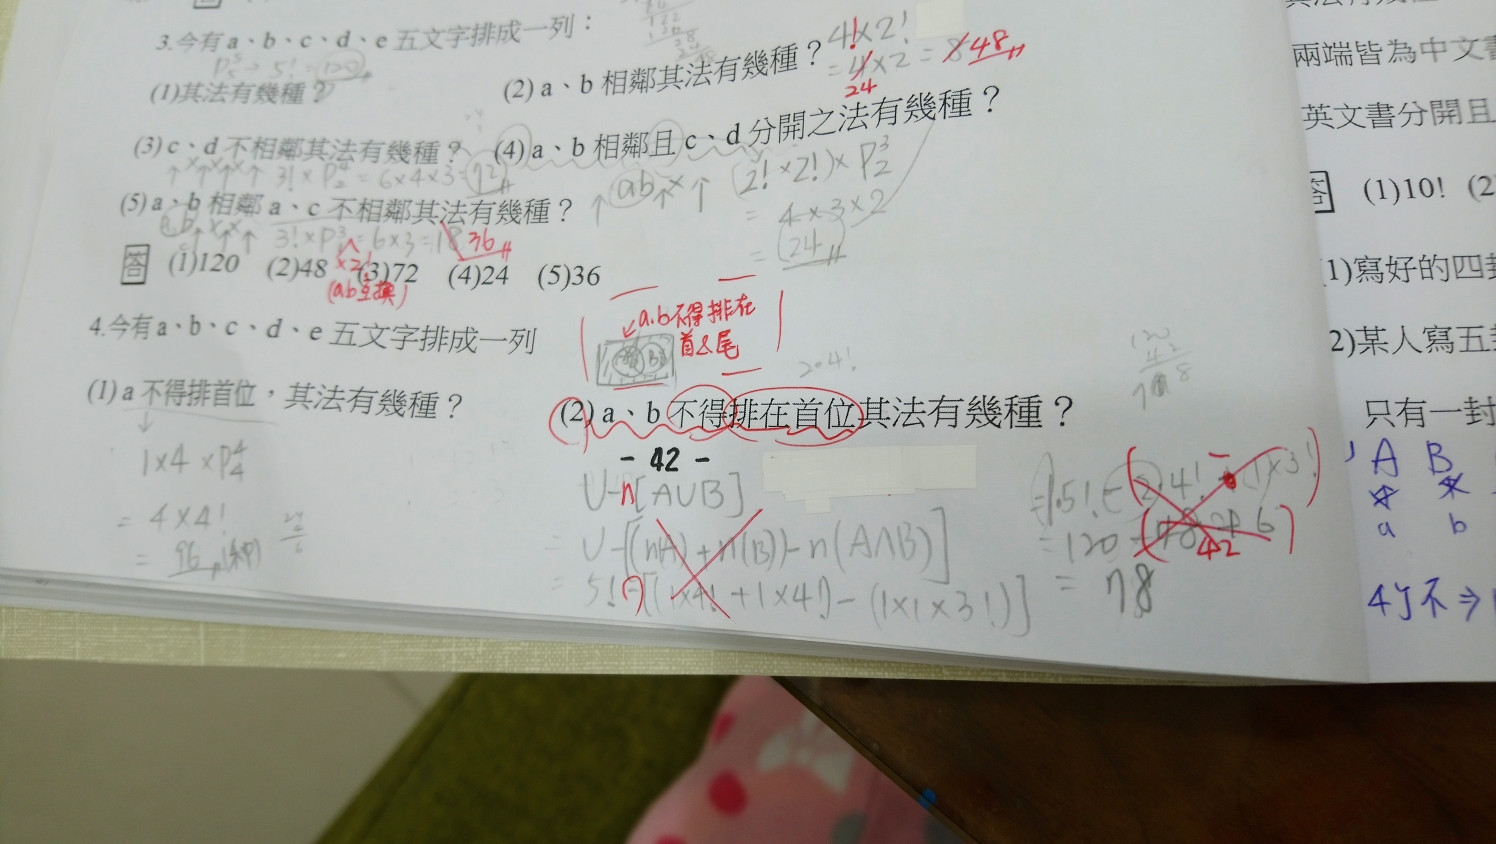 3.今有a、b、c、d、e五文字排成一列：
P⁵₅ → 5! = 120
(1)其法有幾種？
(2) a、b 相鄰其法有幾種？
4!×2!
= 4×2 = 8 48
24
(3) c、d 不相鄰其法有幾種？
3! × P⁴₂ = 6×4×3 = 72
(4) a、b 相鄰且 c、d 分開之法有幾種？
↑ab↑×↑
(2!×2!)×P³₂
= 4×3×2
= 24
(5) a、b 相鄰 a、c 不相鄰其法有幾種？
3!×P³₁ = 6×3 = 18 36
×2!
(ab互換)
答 (1)120 (2)48 (3)72 (4)24 (5)36
4.今有a、b、c、d、e 五文字排成一列
a.b不得排在
首&尾
2·4!
(1) a 不得排首位，其法有幾種？
1×4×P⁴₄
= 4×4!
= 96
(2) a、b 不得排在首位其法有幾種？
- 42 -
U-n[A∪B]
= U-[(n(A)+n(B))-n(A∩B)]
= 5!-[(1×4!+1×4!)-(1×1×3!)]
=120
42
= 78
兩端皆為中文書
英文書分開且
答 (1)10! (2
1)寫好的四封
2)某人寫五封
只有一封
A B
a b
4以不⇒